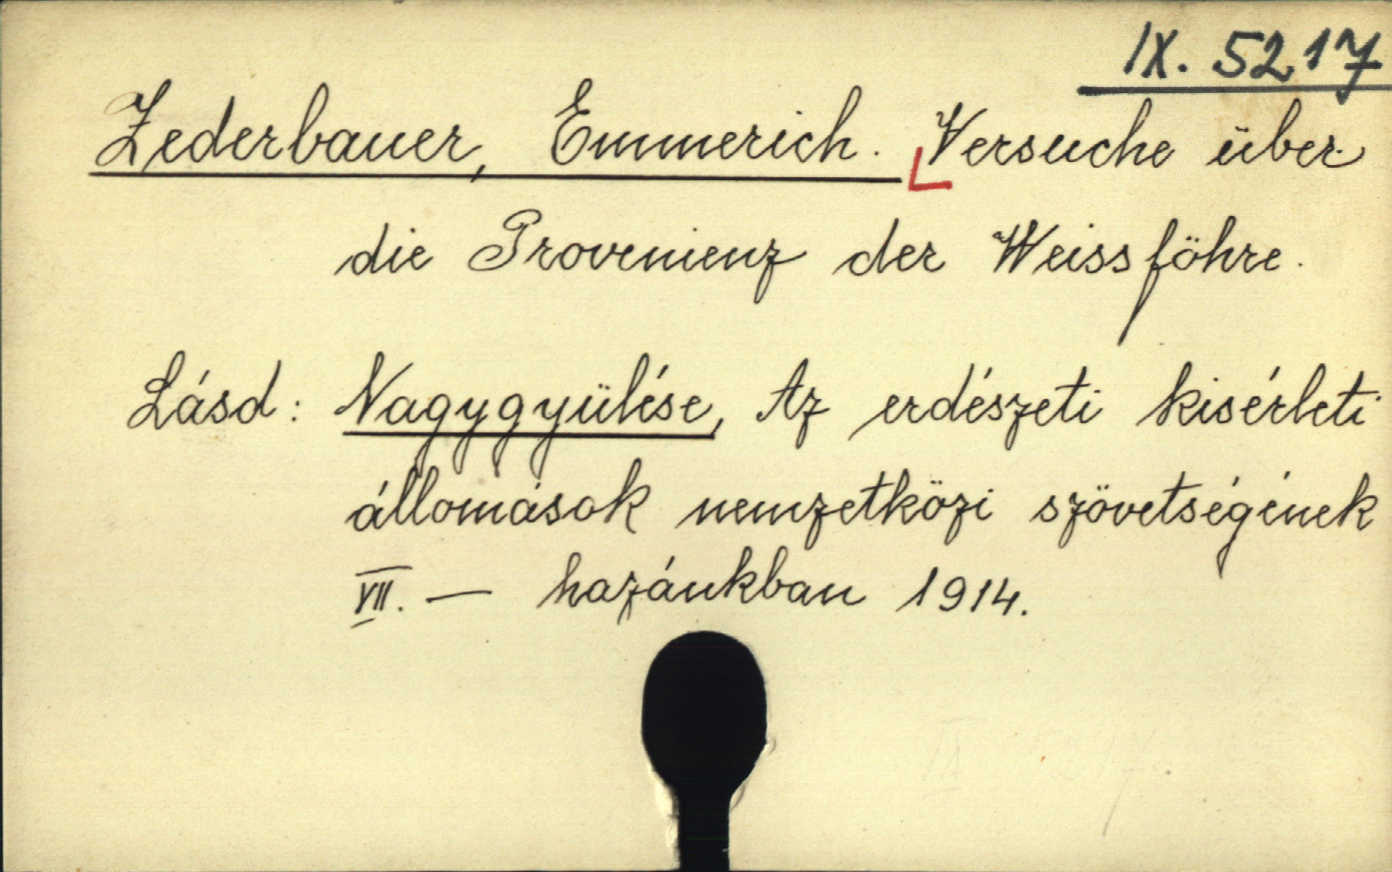 IX. 5217
Zederbauer, Emmerich. Versuche über
die Provenienz der Weissföhre.
Lásd: Nagygyülése, Az erdészeti kisérleti
állomások nemzetközi szövetségének
VII. — hazánkban 1914.